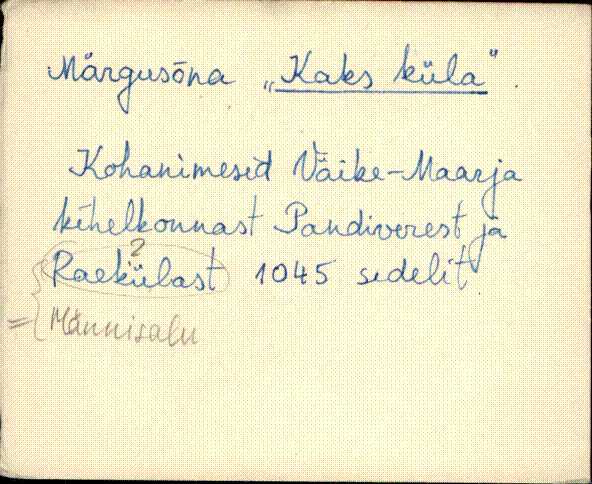 Märgusõna „Kaks küla".
Kohanimesid Väike-Maarja
kihelkonnast Pandiverest ja
?
Raekülast 1045 sedelit
= Männisalu